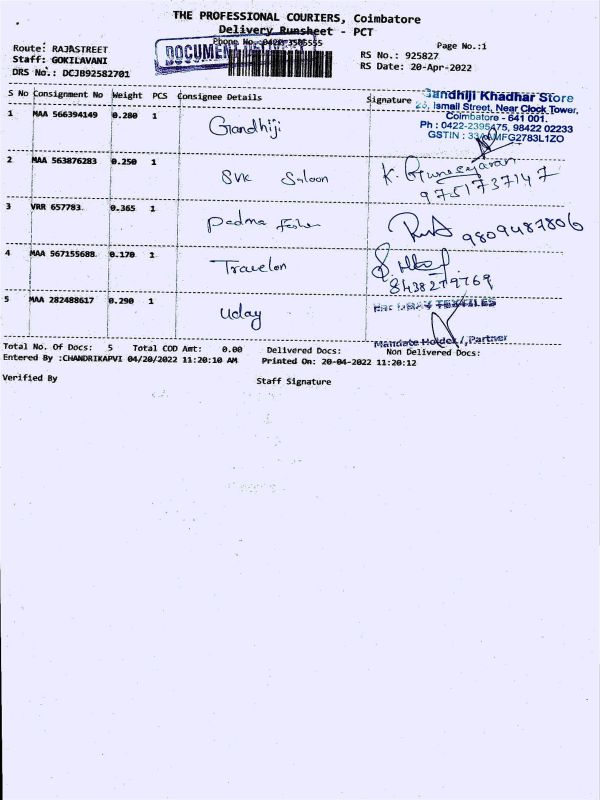 THE PROFESSIONAL COURIERS, Coimbatore
Delivery Runsheet - PCT
Route: RAJASTREET
Staff: GOKILAVANI
DRS No.: DCJB92582701
DOCUMENT
Page No.:1
RS No.: 925827
RS Date: 20-Apr-2022
S No Consignment No Weight PCS Consignee Details Signature
Gandhiji Khadhar Store
23, Ismail Street, Near Clock Tower,
Coimbatore - 641 001.
Ph : 0422-2395475, 98422 02233
GSTIN :
1 MAA 566394149 0.280 1 Gandhiji
2 MAA 563876283 0.250 1 SVK Saloon K. Gunasekaran
9751737147
3 VRR 657783 0.365 1 Padma 9809487806
4 MAA 567155688 0.170 1 Travelon
8438279769
5 MAA 282488617 0.290 1 Uday
For UDAY TEXTILES
Mandate Holder / Partner
Total No. Of Docs: 5 Total COD Amt: 0.00 Delivered Docs: Non Delivered Docs:
Entered By :CHANDRIKAPVI 04/20/2022 11:20:10 AM Printed On: 20-04-2022 11:20:12
Verified By Staff Signature